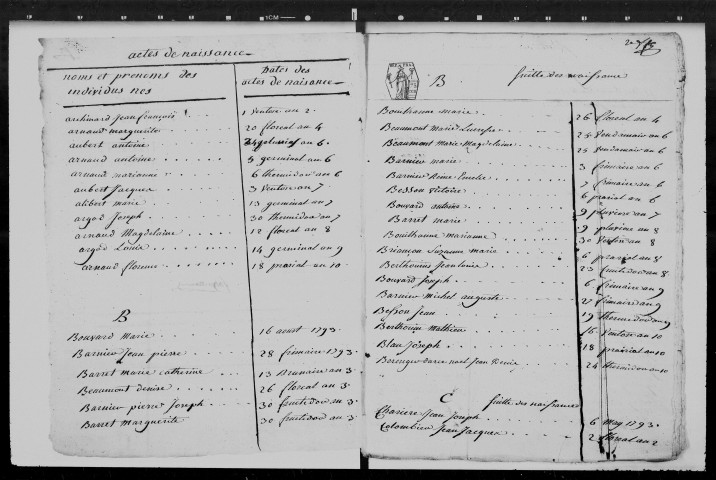 actes de naissance
noms et prenoms des individus nés
Dates des actes de naisance
archinard jean françois 1 ventose an 2
arnaud marguerite 20 floreal an 4
aubert antoine 24 pluviose an 6
arnaud antoine 5 germinal an 6
arnaud marianne 6 thermidor an 6
aubert jacques 3 ventose an 7
alibert marie 13 germinal an 7
argod Joseph 30 thermidor an 7
arnaud Magdelaine 12 floreal an 8
argod Louis 14 germinal an 9
arnaud florence 18 prairial an 10
B
Bouvard Marie 16 aoust 1793
Barnier Jean pierre 28 frimaire 1793
Barret marie catherine 13 Brumaire an 3
Beaumont denise 26 floreal an 3
Barnier pierre Joseph 30 fructidor an 3
Barret marguerite 30 fructidor an 3
B suitte des naissance
Bouilhanne marie 26 floreal an 4
Beaumont Marie 28 vendemaire an 6
Beaumont Marie Magdelaine 28 vendemaire an 6
Barnier marie 3 frimaire an 6
Barnier 7 frimaire an 6
Besson victoire 6 prairial an 6
Bouvard antoine 9 pluviose an 7
Barret marie 9 pluviose an 8
Bouilhanne marianne 30 ventose an 8
Briançon Suzanne marie 6 prairial an 8
Berthouin Jean louis 23 fructidor an 8
Bouvard Joseph 6 frimaire an 9
Barnier Michel auguste 21 frimaire an 9
Besson Jean 19 thermidor an 9
Berthouin mathieu 16 ventose an 10
Blau Joseph 18 prairial an 10
24 thermidor an 10
C suitte des naissances
Chariere Jean Joseph 6 may 1793
Colombier Jean Jacques 2 floreal an 2